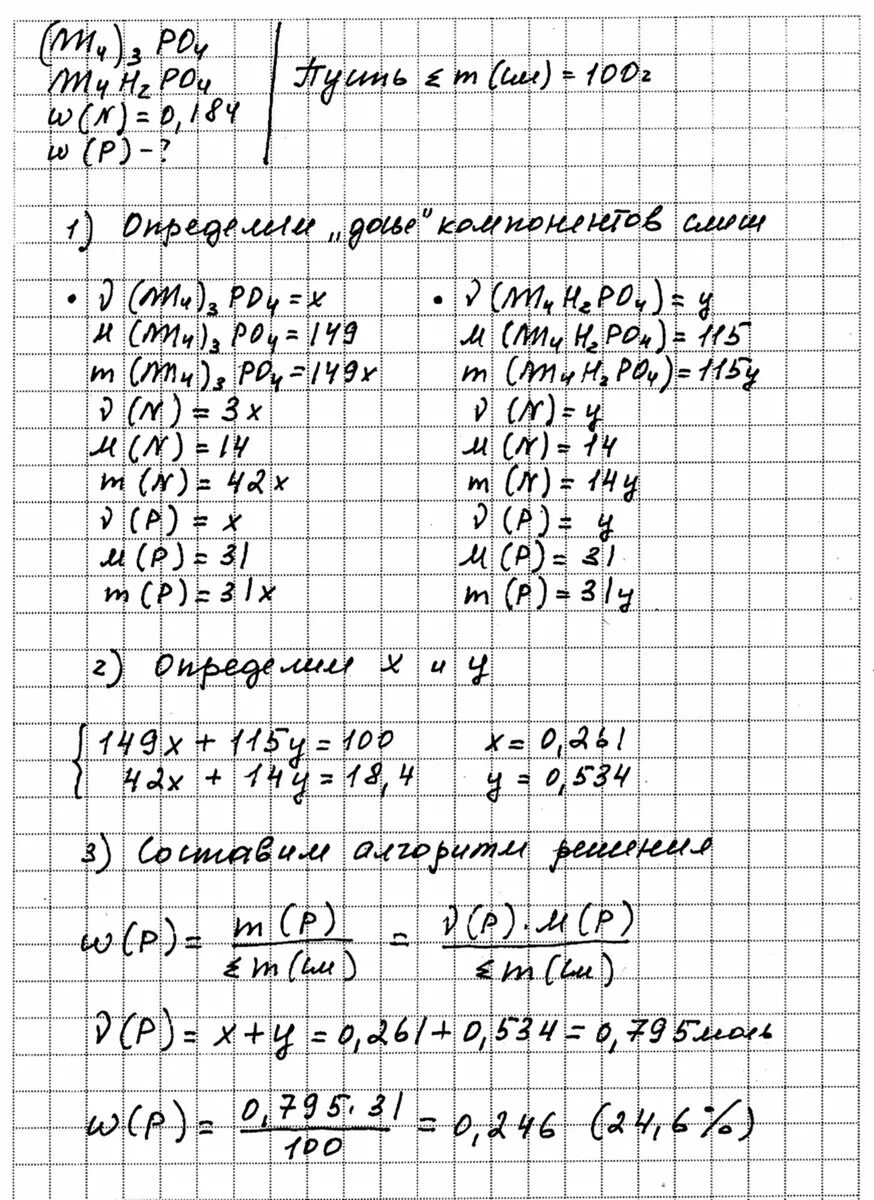 (NH₄)₃PO₄
NH₄H₂PO₄
ω(N) = 0,184
ω(P) - ?
Пусть Σm(см) = 100г
1) Определим „досье" компонентов смеси
• ν(NH₄)₃PO₄ = x
M(NH₄)₃PO₄ = 149
m(NH₄)₃PO₄ = 149x
ν(N) = 3x
M(N) = 14
m(N) = 42x
ν(P) = x
M(P) = 31
m(P) = 31x
• ν(NH₄H₂PO₄) = y
M(NH₄H₂PO₄) = 115
m(NH₄H₂PO₄) = 115y
ν(N) = y
M(N) = 14
m(N) = 14y
ν(P) = y
M(P) = 31
m(P) = 31y
2) Определим x и y
{ 149x + 115y = 100 x = 0,261
42x + 14y = 18,4 y = 0,534
3) Составим алгоритм решения
ω(P) = m(P) / Σm(см) = ν(P)·M(P) / Σm(см)
ν(P) = x + y = 0,261 + 0,534 = 0,795моль
ω(P) = 0,795·31 / 100 = 0,246 (24,6%)